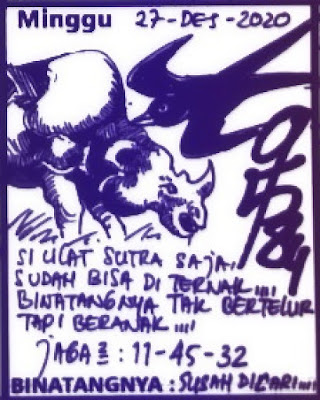 Minggu 27-DES-2020
SI ULAT SUTRA SAJA,
SUDAH BISA DI TERNAK,,,,
BINATANGNYA TAK BERTELUR
TAPI BERANAK,,,,
JAGA² : 11-45-32
BINATANGNYA : SUSAH DICARI,,,,